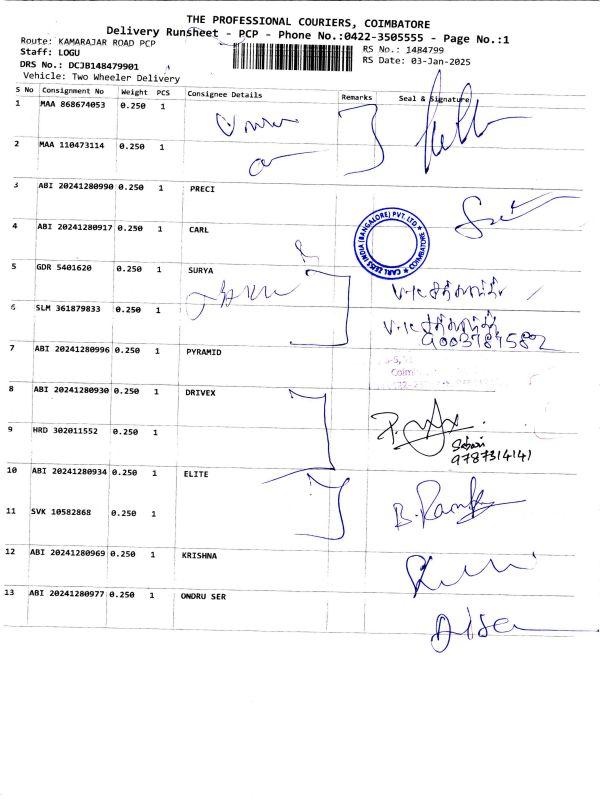 THE PROFESSIONAL COURIERS, COIMBATORE
Delivery Runsheet - PCP - Phone No.:0422-3505555 - Page No.:1
Route: KAMARAJAR ROAD PCP
RS No.: 1484799
Staff: LOGU
RS Date: 03-Jan-2025
DRS No.: DCJB148479901
Vehicle: Two Wheeler Delivery
S No Consignment No Weight PCS Consignee Details Remarks Seal & Signature
1 MAA 868674053 0.250 1
2 MAA 110473114 0.250 1
3 ABI 20241280990 0.250 1 PRECI
4 ABI 20241280917 0.250 1 CARL
CARL ZEISS INDIA (BANGALORE) PVT. LTD. ★ COIMBATORE ★
5 GDR 5401620 0.250 1 SURYA
6 SLM 361879833 0.250 1
7 ABI 20241280996 0.250 1 PYRAMID
8 ABI 20241280930 0.250 1 DRIVEX
9 HRD 302011552 0.250 1
Sabari
9787314141
10 ABI 20241280934 0.250 1 ELITE
11 SVK 10582868 0.250 1
12 ABI 20241280969 0.250 1 KRISHNA
13 ABI 20241280977 0.250 1 ONDRU SER